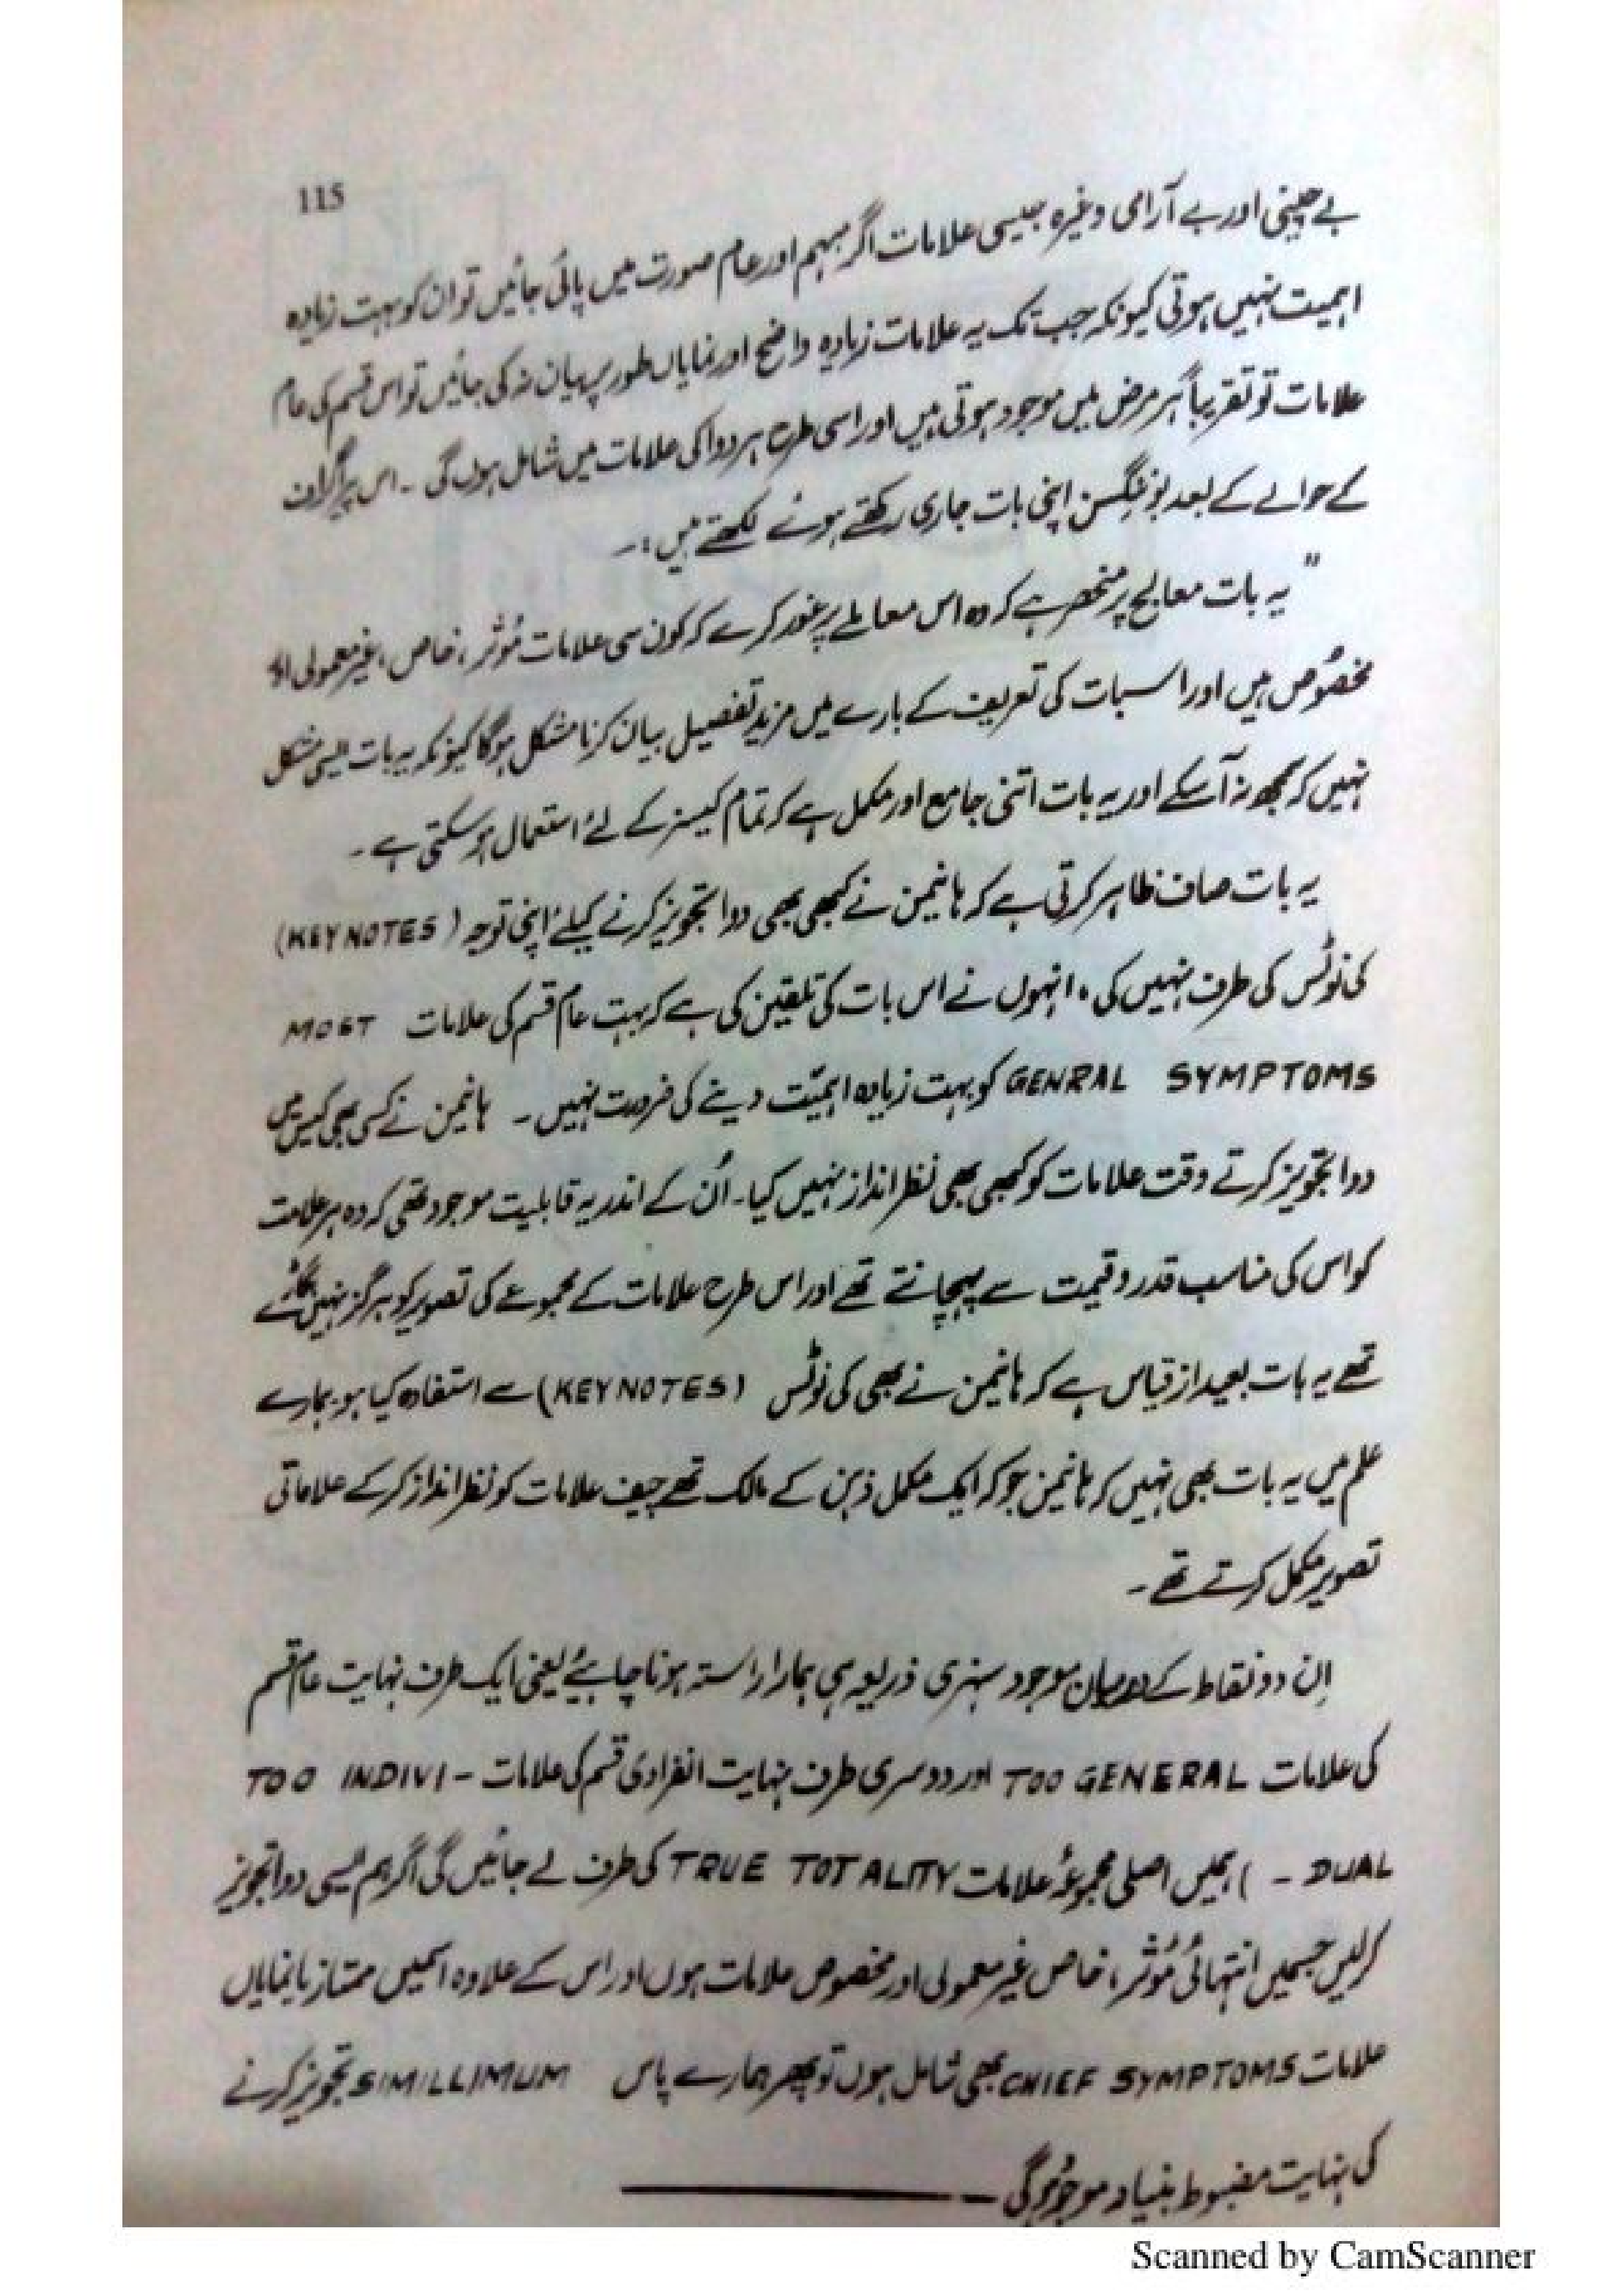 115
بے چینی اور بے آرامی وغیرہ جیسی علامات اگر مبہم اور عام صورت میں پائی جائیں تو ان کو بہت زیادہ
اہمیت نہیں ہوتی کیونکہ جب تک یہ علامات زیادہ واضح اور نمایاں طور پر بیان نہ کی جائیں تو اس قسم کی عام
علامات تو تقریباً ہر مرض میں موجود ہوتی ہیں اور اسی طرح ہر دوا کی علامات میں شامل ہوں گی ۔ اس پیراگراف
کے حوالے کے بعد بوننگسن اپنی بات جاری رکھتے ہوئے لکھتے ہیں :۔
" یہ بات معالج پر منحصر ہے کہ وہ اس معاملے پر غور کرے کہ کون سی علامات مُؤثر ، خاص ، غیر معمولی اور
مخصُوص ہیں اور اس بات کی تعریف کے بارے میں مزید تفصیل بیان کرنا مشکل ہوگا کیونکہ یہ بات ایسی مشکل
نہیں کہ سمجھ نہ آسکے اور یہ بات اتنی جامع اور مکمل ہے کہ تمام کیسز کے لئے استعمال ہو سکتی ہے ۔
یہ بات صاف ظاہر کرتی ہے کہ ہانیمن نے کبھی بھی دوا تجویز کرنے کیلئے اپنی توجہ (KEYNOTES)
کی نوٹس کی طرف نہیں کی ، انہوں نے اس بات کی تلقین کی ہے کہ بہت عام قسم کی علامات MOST
GENRAL SYMPTOMS کو بہت زیادہ اہمیّت دینے کی ضرورت نہیں ۔ ہانیمن نے کسی بھی کیس میں
دوا تجویز کرتے وقت علامات کو کبھی بھی نظر انداز نہیں کیا ۔ اُن کے اندر یہ قابلیت موجود تھی کہ وہ ہر علامت
کو اس کی مناسب قدر و قیمت سے پہچانتے تھے اور اس طرح علامات کے مجموعے کی تصویر کو ہرگز نہیں بگاڑتے
تھے یہ بات بعید از قیاس ہے کہ ہانیمن نے بھی کی نوٹس (KEYNOTES) سے استفادہ کیا ہو ہمارے
علم میں یہ بات بھی نہیں کہ ہانیمن جو کہ ایک مکمل ذہن کے مالک تھے چیف علامات کو نظر انداز کر کے علاماتی
تصویر مکمل کرتے تھے ۔
اِن دو نقاط کے درمیان موجود سنہری ذریعہ ہی ہمارا راستہ ہونا چاہیئے یعنی ایک طرف نہایت عام قسم
کی علامات TOO GENERAL اور دوسری طرف نہایت انفرادی قسم کی علامات - TOO INDIVI
DUAL - ) ہمیں اصلی مجموعۂ علامات TRUE TOTALITY کی طرف لے جائیں گی اگر ہم ایسی دوا تجویز
کرلیں جسمیں انتہائی مُؤثر ، خاص غیر معمولی اور مخصوص علامات ہوں اور اس کے علاوہ اسمیں ممتاز یا نمایاں
علامات CHIEF SYMPTOMS بھی شامل ہوں تو پھر ہمارے پاس SIMILLIMUM تجویز کرنے
کی نہایت مضبوط بنیاد موجود ہوگی ۔
Scanned by CamScanner